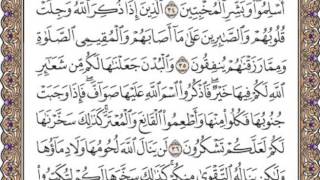 أَسْلِمُوا۟ وَبَشِّرِ ٱلْمُخْبِتِينَ ٣٤ ٱلَّذِينَ إِذَا ذُكِرَ ٱللَّهُ وَجِلَتْ
قُلُوبُهُمْ وَٱلصَّٰبِرِينَ عَلَىٰ مَآ أَصَابَهُمْ وَٱلْمُقِيمِى ٱلصَّلَوٰةِ
وَمِمَّا رَزَقْنَٰهُمْ يُنفِقُونَ ٣٥ وَٱلْبُدْنَ جَعَلْنَٰهَا لَكُم مِّن شَعَٰٓئِرِ
ٱللَّهِ لَكُمْ فِيهَا خَيْرٌ ۖ فَٱذْكُرُوا۟ ٱسْمَ ٱللَّهِ عَلَيْهَا صَوَآفَّ ۖ فَإِذَا وَجَبَتْ
جُنُوبُهَا فَكُلُوا۟ مِنْهَا وَأَطْعِمُوا۟ ٱلْقَانِعَ وَٱلْمُعْتَرَّ ۚ كَذَٰلِكَ سَخَّرْنَٰهَا
لَكُمْ لَعَلَّكُمْ تَشْكُرُونَ ٣٦ لَن يَنَالَ ٱللَّهَ لُحُومُهَا وَلَا دِمَآؤُهَا
وَلَٰكِن يَنَالُهُ ٱلتَّقْوَىٰ مِنكُمْ ۚ كَذَٰلِكَ سَخَّرَهَا لَكُمْ لِتُكَبِّرُوا۟